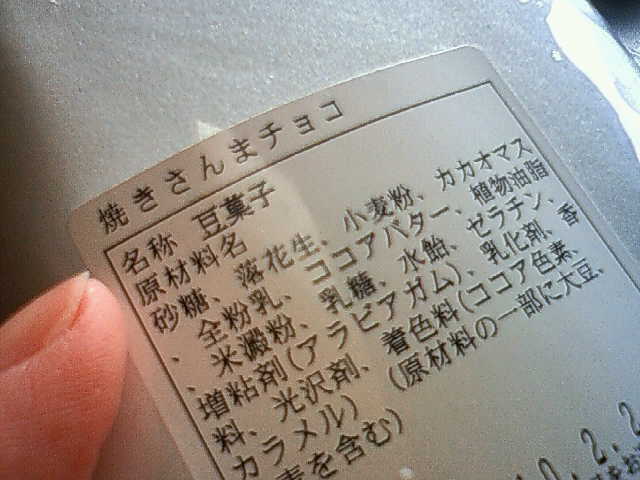 焼きさんまチョコ
名称 豆菓子
原材料名
砂糖、落花生、小麦粉、カカオマス
、全粉乳、ココアバター、植物油脂
、米澱粉、乳糖、水飴、ゼラチン、
増粘剤(アラビアガム)、乳化剤、香
料、光沢剤、着色料(ココア色素、
カラメル) (原材料の一部に大豆、
麦を含む)